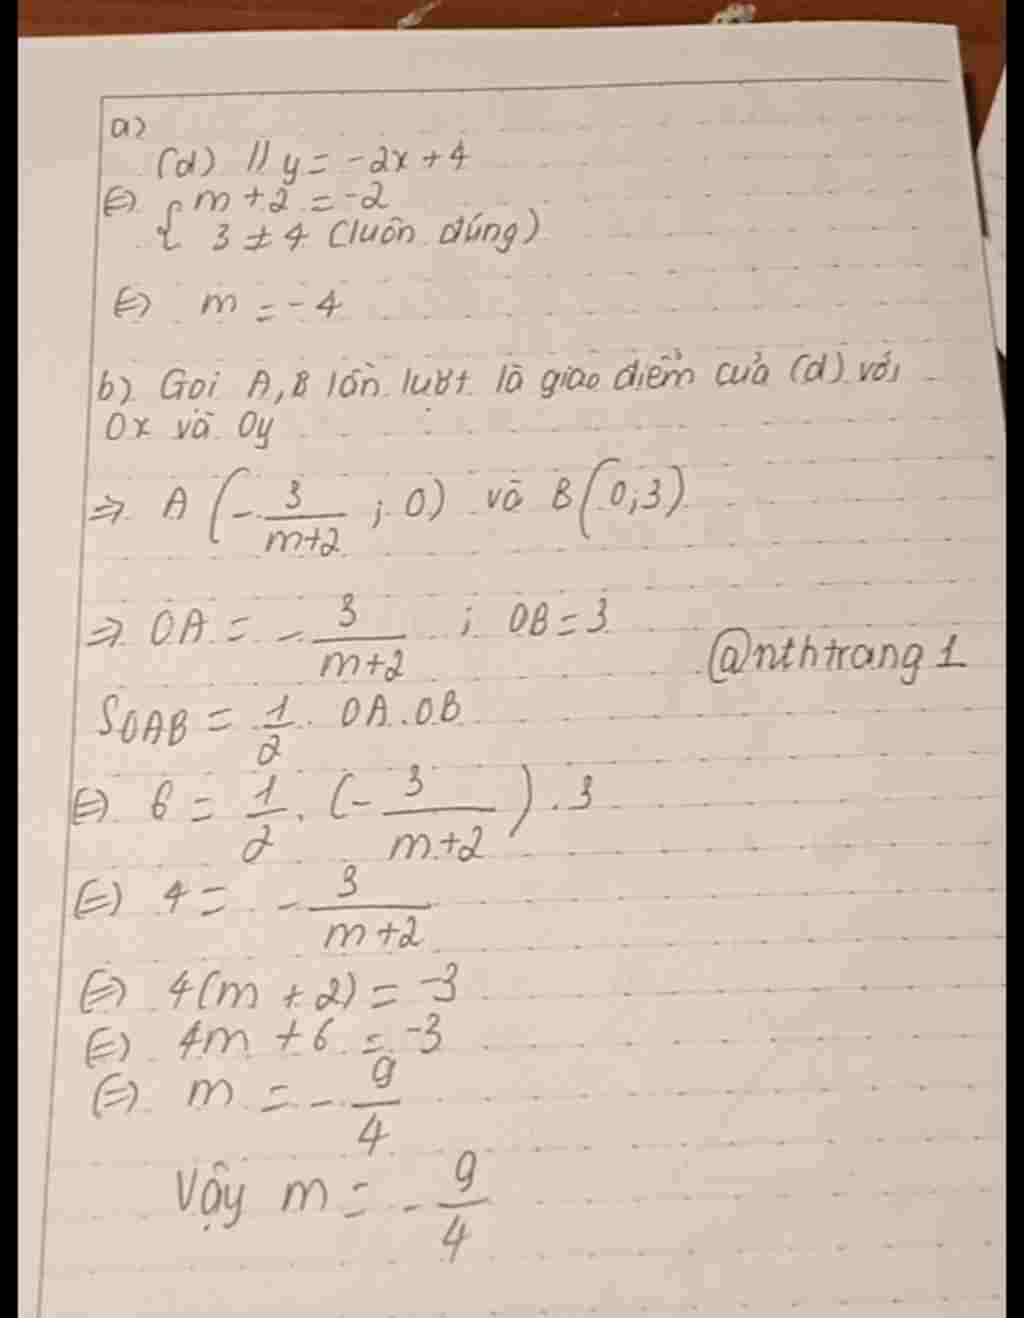 a)
(d) // y = -2x + 4
⇔ { m + 2 = -2
3 ≠ 4 (luôn đúng)
⇔ m = -4
b) Gọi A, B lần lượt là giao điểm của (d) với
Ox và Oy
⇒ A (-3/(m+2) ; 0) và B(0;3)
⇒ OA = -3/(m+2) ; OB = 3
@nthtrang1
S_OAB = 1/2 . OA . OB
⇔ 6 = 1/2 . (-3/(m+2)) . 3
⇔ 4 = -3/(m+2)
⇔ 4(m + 2) = -3
⇔ 4m + 6 = -3
⇔ m = -9/4
Vậy m = -9/4